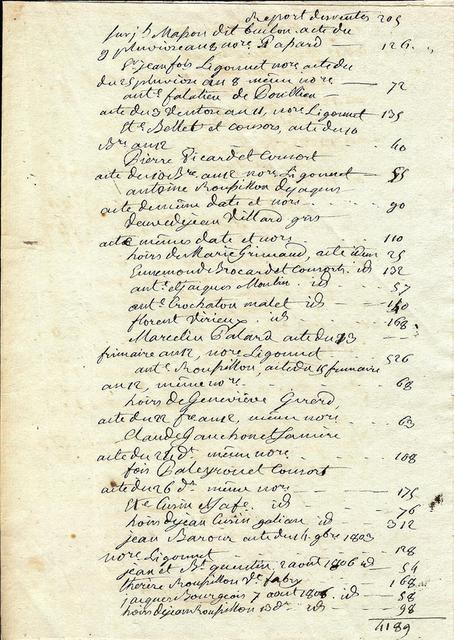 Report des ventes 205
sur jh Mapon dit bulon. acte du
9 pluviose an 8 nore Papard — 126.
Sr jean fois Ligonnet nore acte du
du 25 pluvion an 8 même nore — 72
ant falatieu de Doullieu —
acte du 3 venton an 11, nore Ligonnet — 135
Et Bellet et consors, acte du 10
Bre an 12 40
Pierre Picard et Consort
acte du 10 Bre an 12 nore Ligonnet — 55
antoine Roupillon de jaques
acte de même date et nore 90
Dauvedejean Villard gros
acte mêmes date et nore 110
hoirs de Marie Grimaud, acte idem 25
Ennemond Brocard et Consorts id 132
ant et jaques Moulin . id — 57
ant Crochaton malet id — 140
florent Virieux . id — 168
Marcelin Palard acte du 23 —
frimaire an 12, nore Ligonnet 526
ant Roupillon, acte du 15 frimaire
an 12, même nore — 68
hoirs de Geneviève Girard,
acte du 22 fre an 12, même nore 63
Claude Ganchon et Lamure
acte du 21 dt même nore — 108
fois Paleyron et Consort
acte du 26 dt même nore — 175
Et Cusin Mafe. id — 76
hoirs de jean Cusin galian id — 312
jean Barour acte du 4 9bre 1803
nore Ligonnet — 128
jean et Bt quentin 2 aout 1806 id — 54
therèse Roupillon Ve fabry — 168
jaques Bourgeois 7 aout 1806 . id — 58
hoirs de jean Roupillon 13 dt id — 98
4189